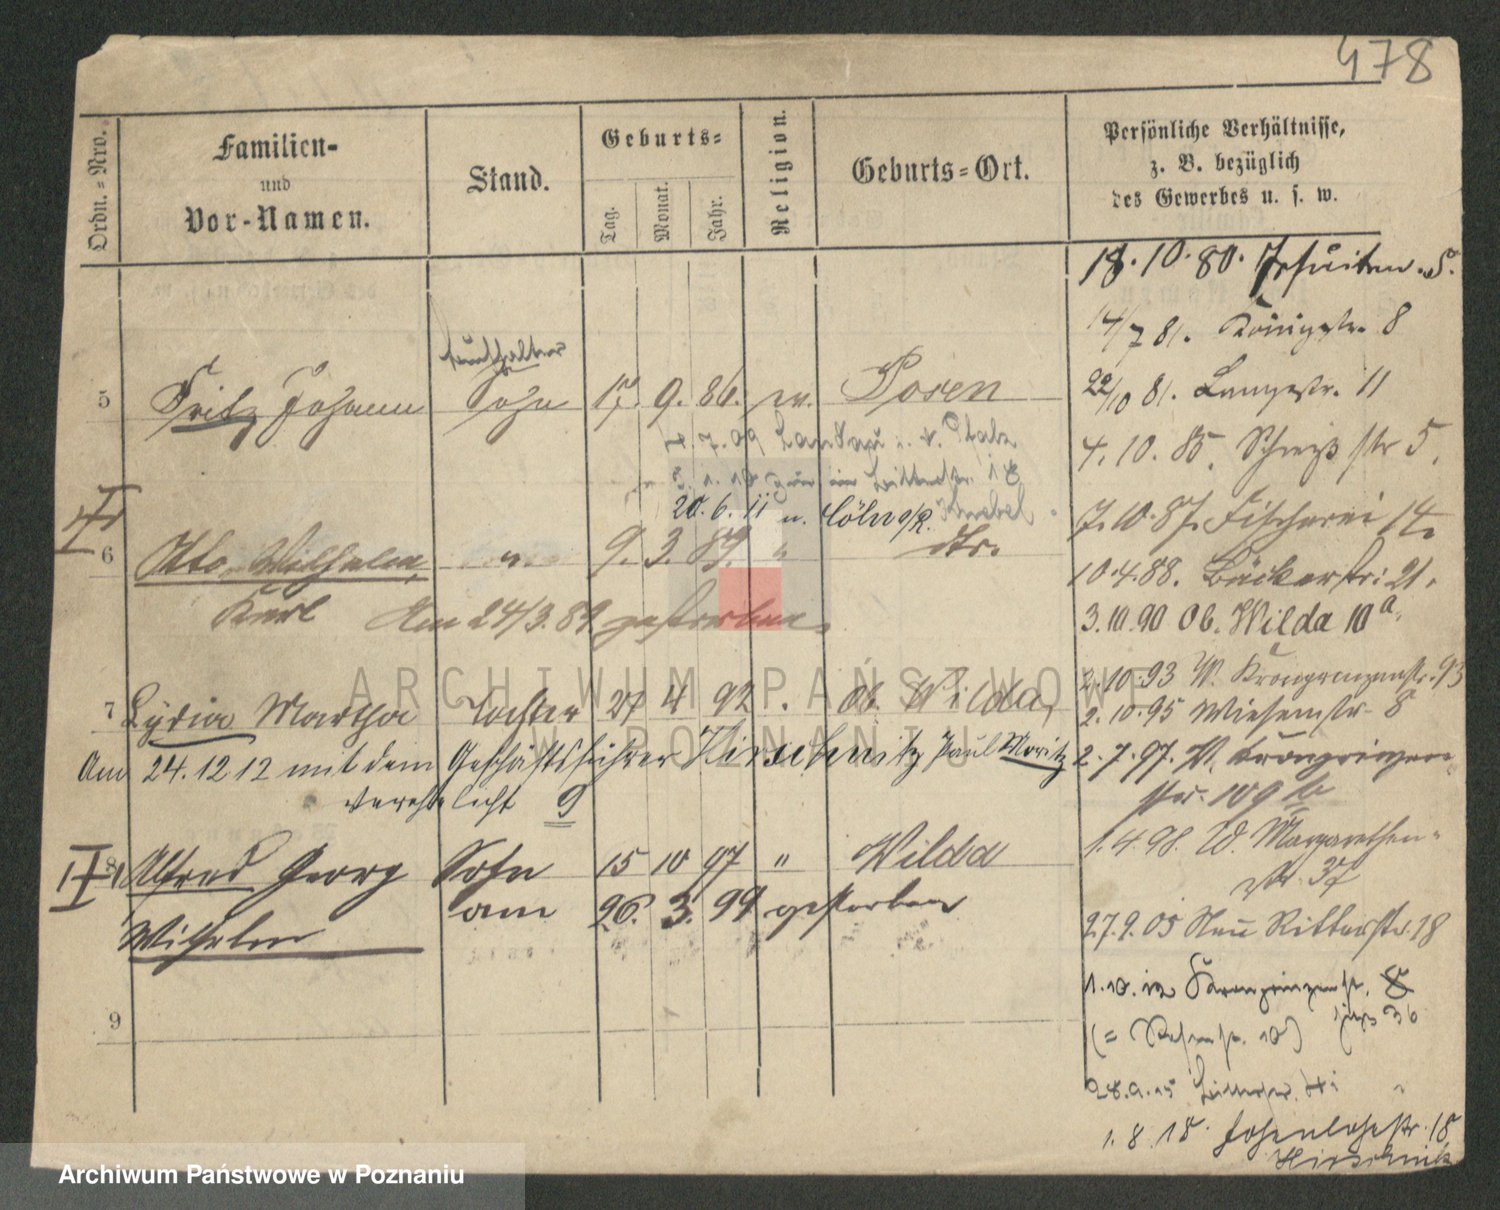 478
Ordn.=Nro.
Familien-
und
Vor-Namen.
Stand.
Geburts=
Tag.
Monat.
Jahr.
Religion.
Geburts=Ort.
Persönliche Verhältnisse,
z. B. bezüglich
des Gewerbes u. s. w.
18.10.80. Jesuiten S.
14/7 81. Königstr. 8
22/10 81. Langestr. 11
4.10.85. Schieß str 5.
7.10.87. Fischerei 14.
10.4.88. Bäckerstr: 21.
3.10.90 Ob. Wilda 10 a.
2.10.93 W. Kronprinzenstr. 93
2.10.95 Wiesenstr 8
2.7.97. W. Kronprinzen
str. 109 b
1.4.98. W. Margarethen-
str. 37
27.9.05 Neue Ritterstr. 18
1.10.12 Kronprinzenstr.
jetzt 36
1.8.18. Hohenlohestr. 18
5 Fritz Johann Sohn 17. 9. 86. ev. Posen
4.7.09 Landau i. d. Pfalz
20.6.11 n. Cöln a/R.
6 Otto Wilhelm 9. 3. 89. " dto.
Karl Am 24/3. 89. gestorben.
7 Lydia Martha Tochter 27 4 92 . Ob. Wilda,
Am 24.12 12 mit dem Geschäftsführer Paul Moritz
verehelicht 9
8 Alfred Georg Sohn 15 10 97 " Wilda
Wilhelm am 26. 3. 99 gestorben
9
ARCHIWUM PAŃSTWOWE
W POZNANIU
Archiwum Państwowe w Poznaniu